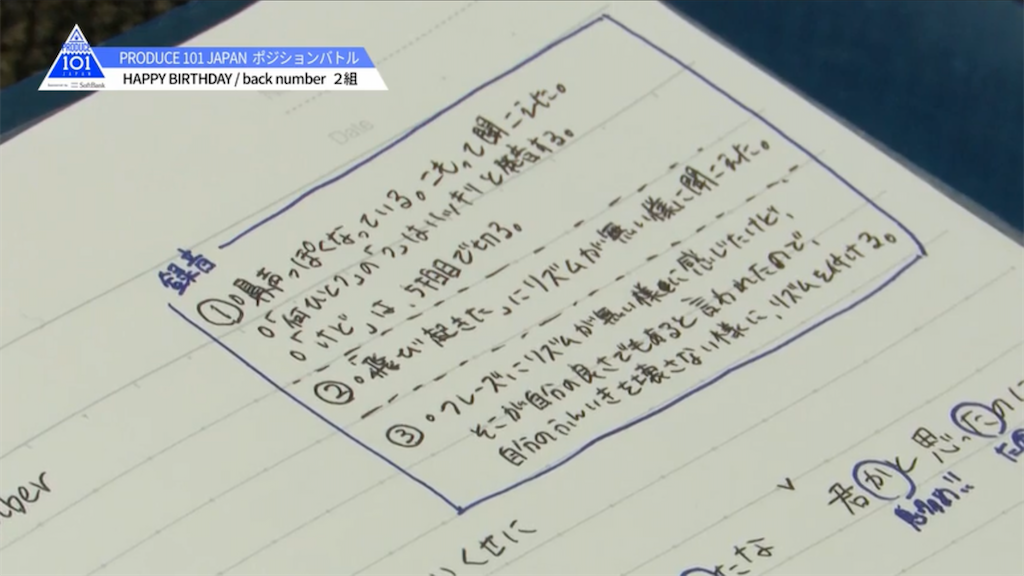 PRODUCE 101 JAPAN
PRODUCE 101 JAPAN ポジションバトル
HAPPY BIRTHDAY / back number 2組
Date
録音
①。鼻声っぽくなっている。こもって聞こえた。
。「何ひとつ」の「つ」はハッキリと発音する。
。「けど」は、5拍目でせめる。
②。「飛び起きた」にリズムが無い様に聞こえた。
③。フレーズにリズムが無い様に感じたけど、
そこが自分の良さでもあると言われたので、
自分のふんいきを壊さない様に、リズムを付ける。
君かと思ったのに
くせに
たな